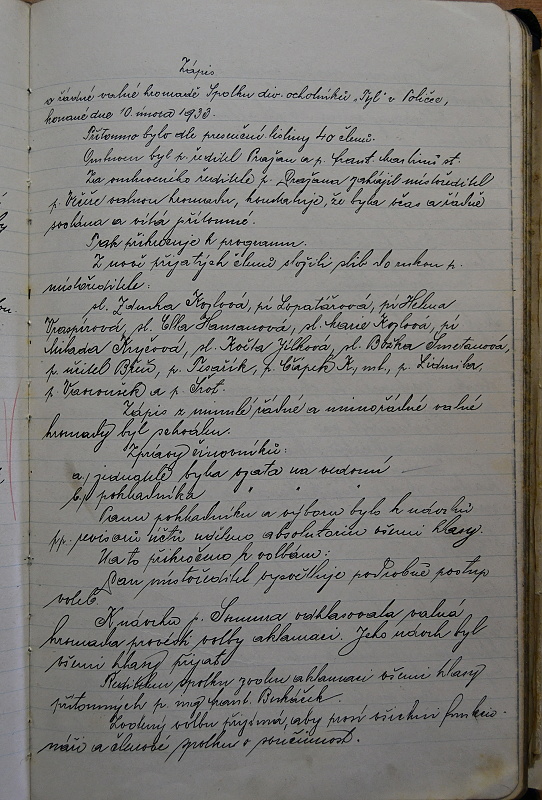 Zápis
o řádné valné hromadě Spolku div. ochotníků "Tyl" v Poličce,
konané dne 10. února 1933.
Přítomno bylo dle presenční listiny 40 členů.
Omluven byl p. ředitel Pražan a p. Frant. Martinů st.
Za omluveného ředitele p. Pražana zahájil místoředitel
p. valnou hromadu, konstatuje, že byla včas a řádně
svolána a vítá přítomné.
Pak přikročuje k programu.
Z nově přijatých členů složili slib do rukou p.
místoředitele:
sl. Zdenka Kozlová, pí Lopatářová, pí Helena
Vraspírová, sl. Ella Hamanová, sl. Marie Kozlová, pí
Milada Kryčová, sl. Květa Jílková, sl. Božka Smetanová,
p. učitel Beneš, p. Písařík, p. Čápek K. ml., p. Lidmila,
p. Vavroušek a p. Šrot.
Zápis z minulé řádné a mimořádné valné
hromady byl schválen.
Zprávy činovníků:
a.) jednatele byla vzata na vědomí
b.) pokladníka " " "
Panu pokladníku a výboru bylo k návrhu
pp. revisorů účtů uděleno absolutorium všemi hlasy.
Na to přikročeno k volbám:
Pan místoředitel vysvětluje podrobně postup
voleb.
K návrhu p. odhlasovala valná
hromada provésti volby aklamací. Jeho návrh byl
všemi hlasy přijat.
Ředitelem spolku zvolen aklamací všemi hlasy
přítomných p. Frant. Bukáček.
Zvolený volbu přijímá, aby prosí všichni funkcio-
náři a členové spolku o součinnost.